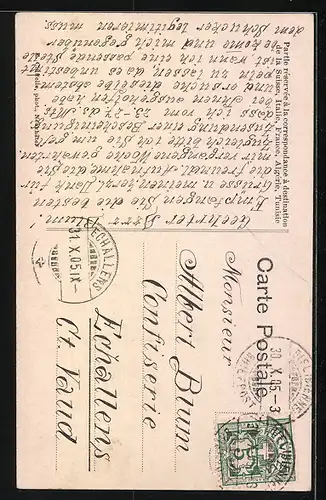 Partie réservée à la correspondance à destination
de la Suisse, Italie, France, Algérie, Tunisie
Geehrter Herr
Blum!
Empfangen Sie die besten
Grüsse u. meinen herzl. Dank für
die freundl. Aufnahme die Sie
mir vergangene Woche gewährten
zugleich bitte ich Sie um gefl.
Zusendung einer Bescheinigung
dass ich vom 23-27 ds. Mts.
bei Ihnen ausgeholfen habe
und ersuche dieselbe abstempeln
zu lassen da es unbestimmt
ist wann ich eine passende Stelle
bekome und mich gegenüber
dem Schücker legitimieren muss.
Carte Postale
Monsieur
Albert Blum
Confiserie
Echallens
Ct. Vaud
ECHALLENS
31.X.05.IX-
30.X.05-3
5